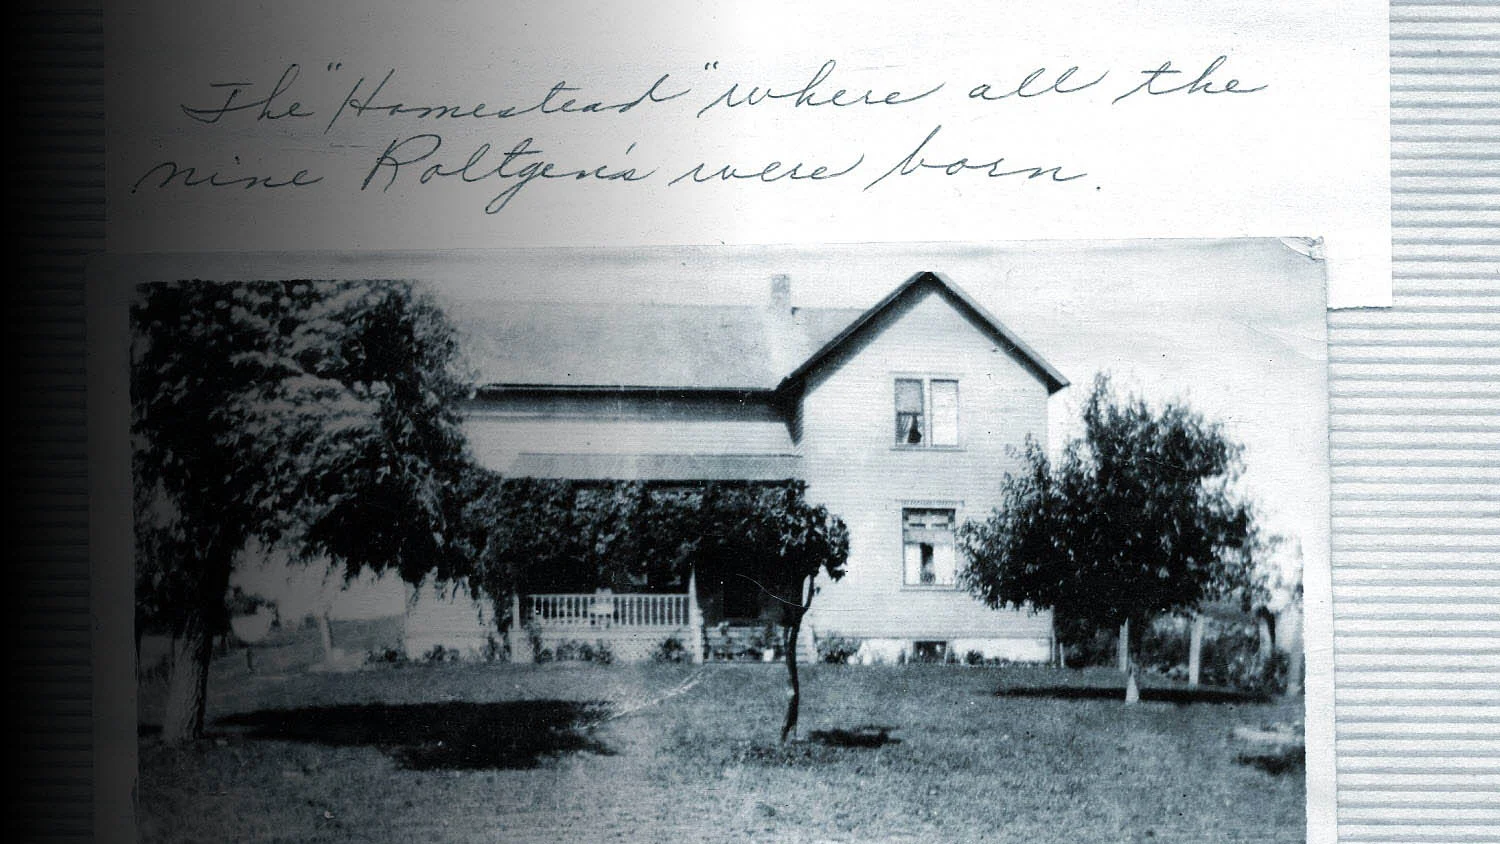 The "Homestead" where all the
nine Roltgen's were born.